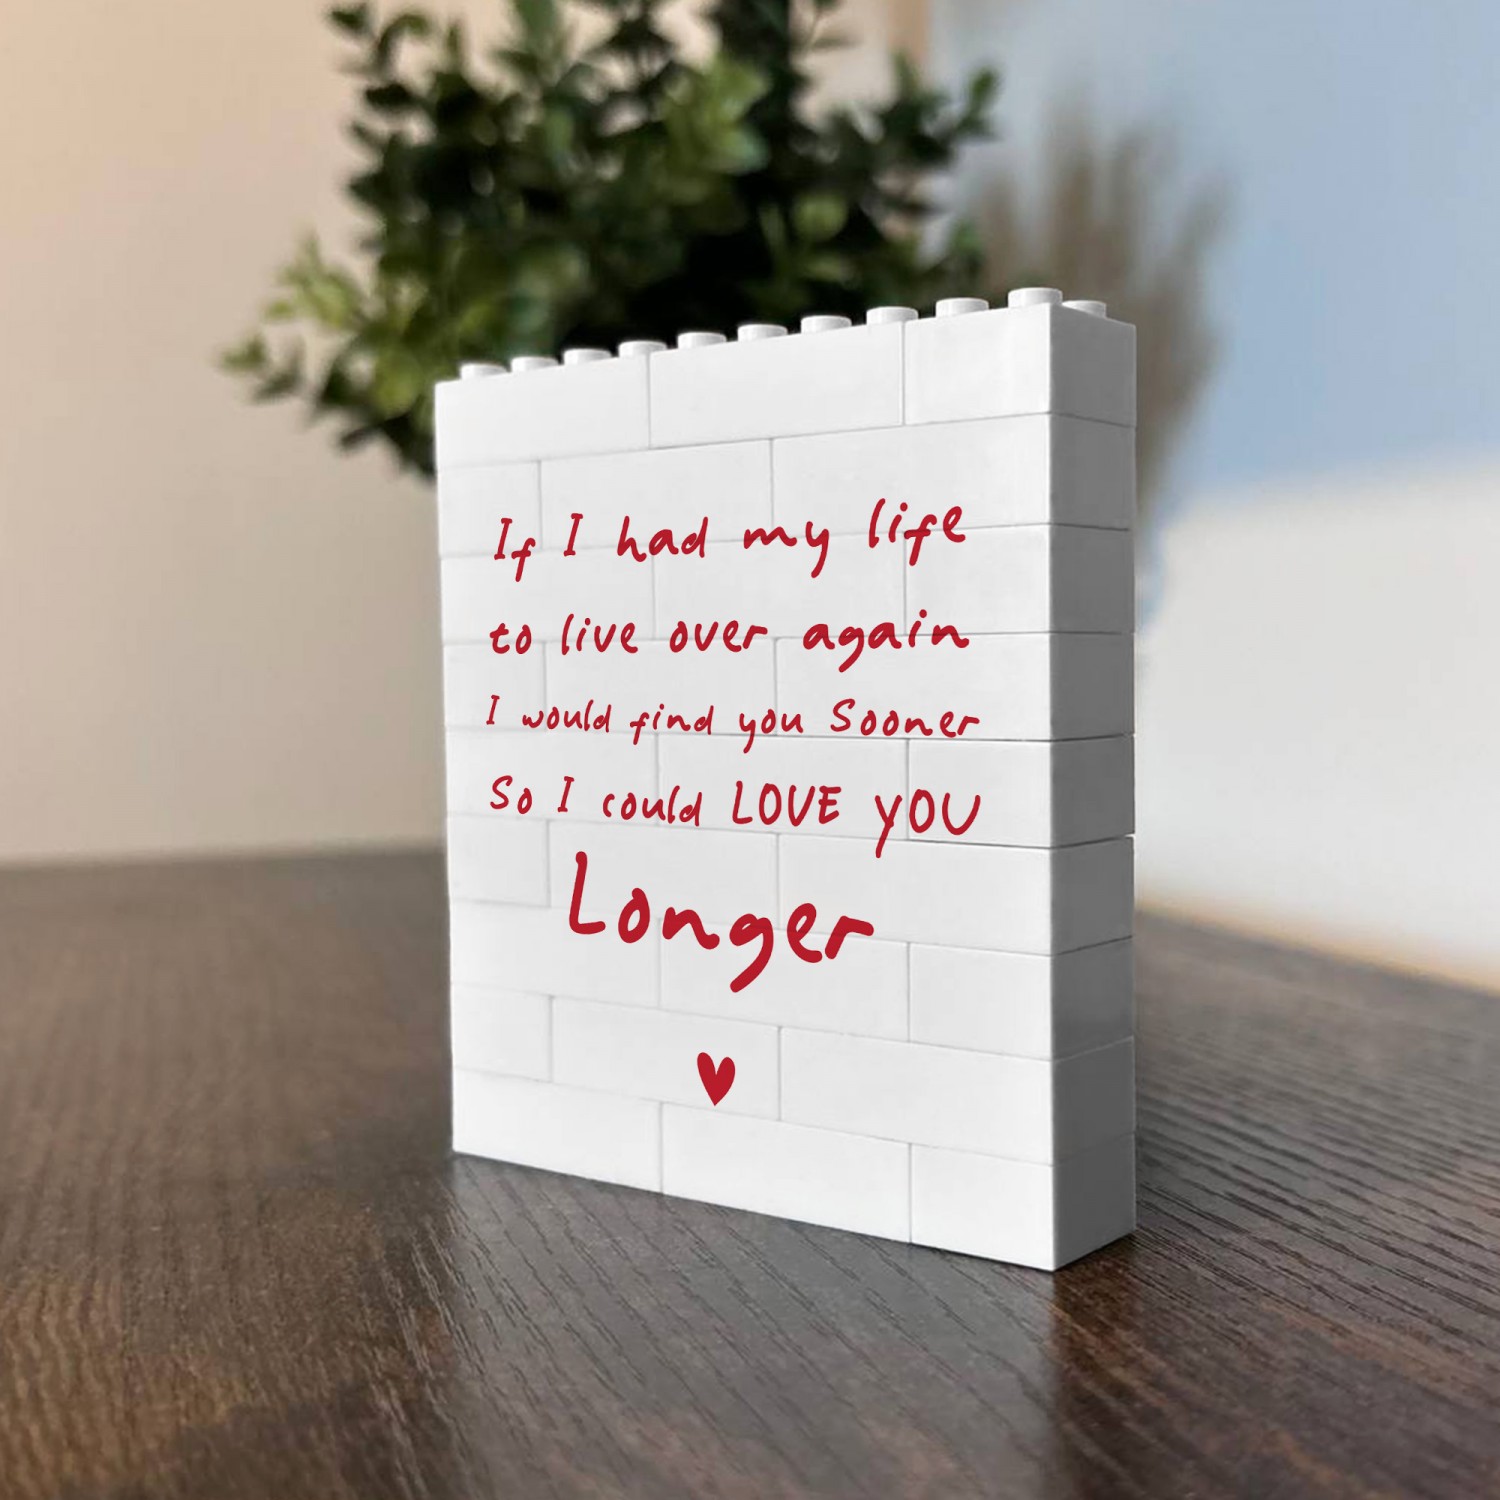 If I had my life
to live over again
I would find you Sooner
So I could LOVE YOU
Longer